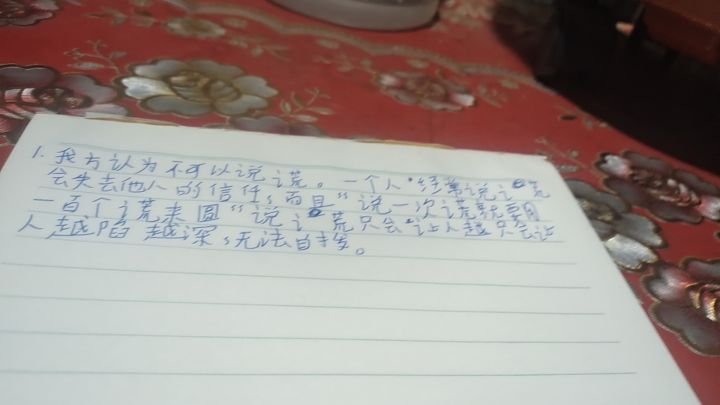 1. 我方认为不可以说谎。一个人经常说谎
会失去他人的信任，而且"说一次谎就要用
一百个谎来圆"说谎只会让人越只会让
人越陷越深，无法自拔。